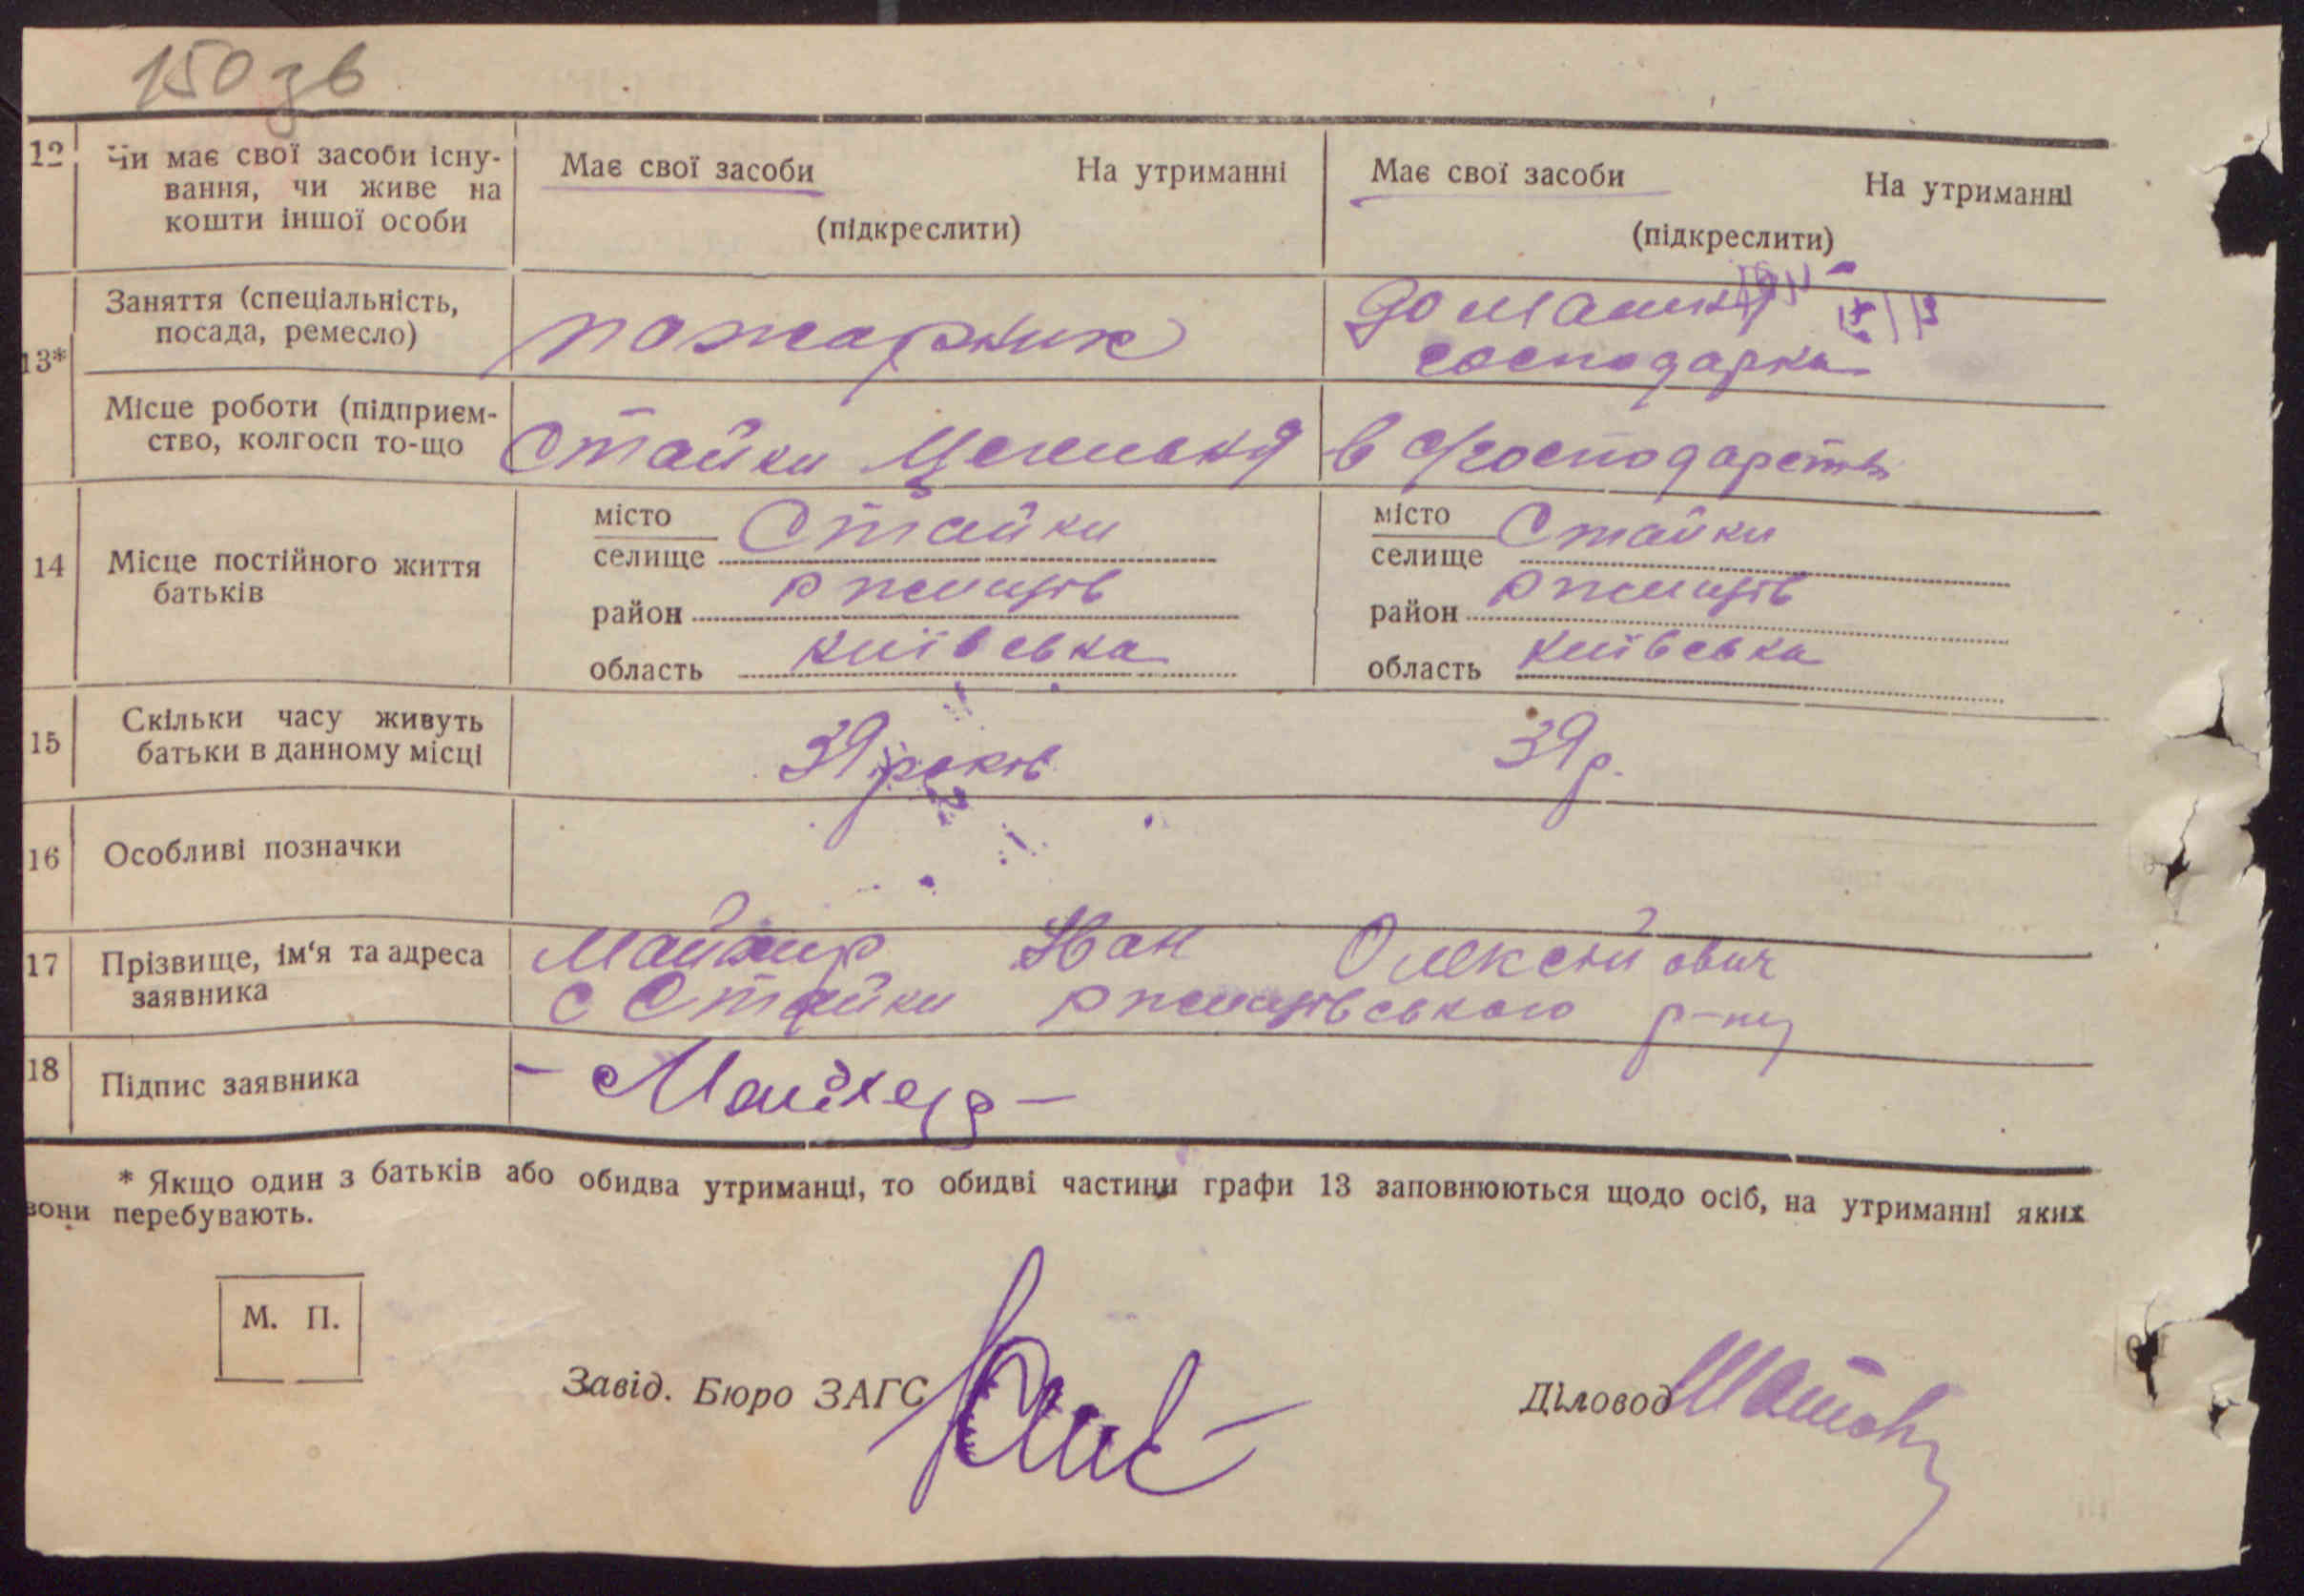 150 зв
12 Чи має свої засоби існу-
вання, чи живе на
кошти іншої особи
Має свої засоби На утриманні
(підкреслити)
Має свої засоби На утриманні
(підкреслити)
13* Заняття (спеціальність,
посада, ремесло)
пожарник
домашня
господарка
Місце роботи (підприєм-
ство, колгосп то-що
Стайки
в господарстві
14 Місце постійного життя
батьків
місто
селище Стайки
район Ржищів
область київська
місто
селище Стайки
район Ржищів
область київська
15 Скільки часу живуть
батьки в данному місці
39 років
39 р.
16 Особливі позначки
17 Прізвище, ім'я та адреса
заявника
Іван Олексійович
с Стайки Ржищівського р-ну
18 Підпис заявника
* Якщо один з батьків або обидва утриманці, то обидві частини графи 13 заповнюються щодо осіб, на утриманні яких
вони перебувають.
М. П.
Завід. Бюро ЗАГС
Діловод